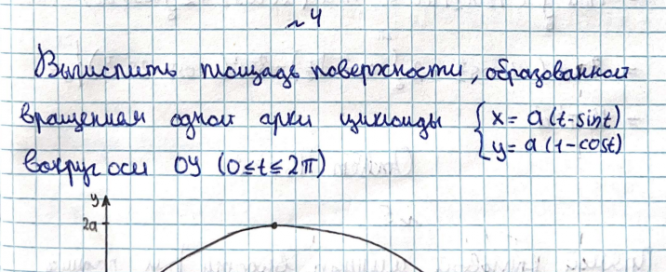 №4
Вычислить площадь поверхности, образованной
вращением одной арки циклоиды { x = a(t-sint)
y = a(1-cost)
вокруг оси OY (0≤t≤2π)
y
2a